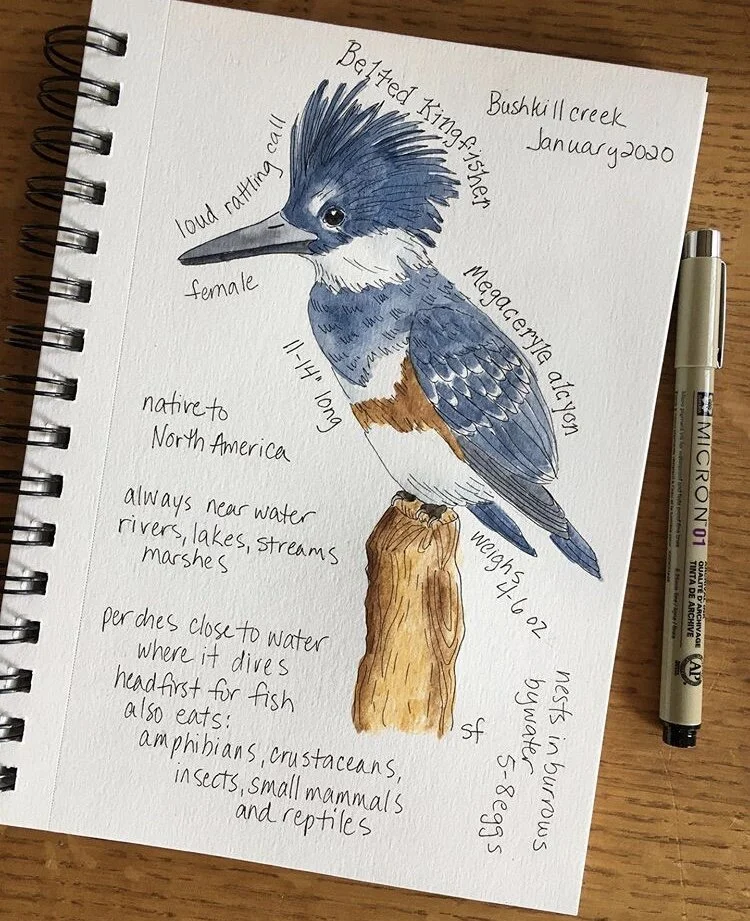 Belted Kingfisher
Bushkill creek
January 2020
loud rattling call
female
Megaceryle alcyon
11-14" long
native to
North America
always near water
rivers, lakes, streams
marshes
weighs
4-6 oz
perches close to water
where it dives
headfirst for fish
also eats:
amphibians, crustaceans,
insects, small mammals
and reptiles
sf
nests in burrows
by water
5-8 eggs
MICRON™ 01
QUALITÉ D'ARCHIVAGE
TINTA DE ARCHIVE
AP